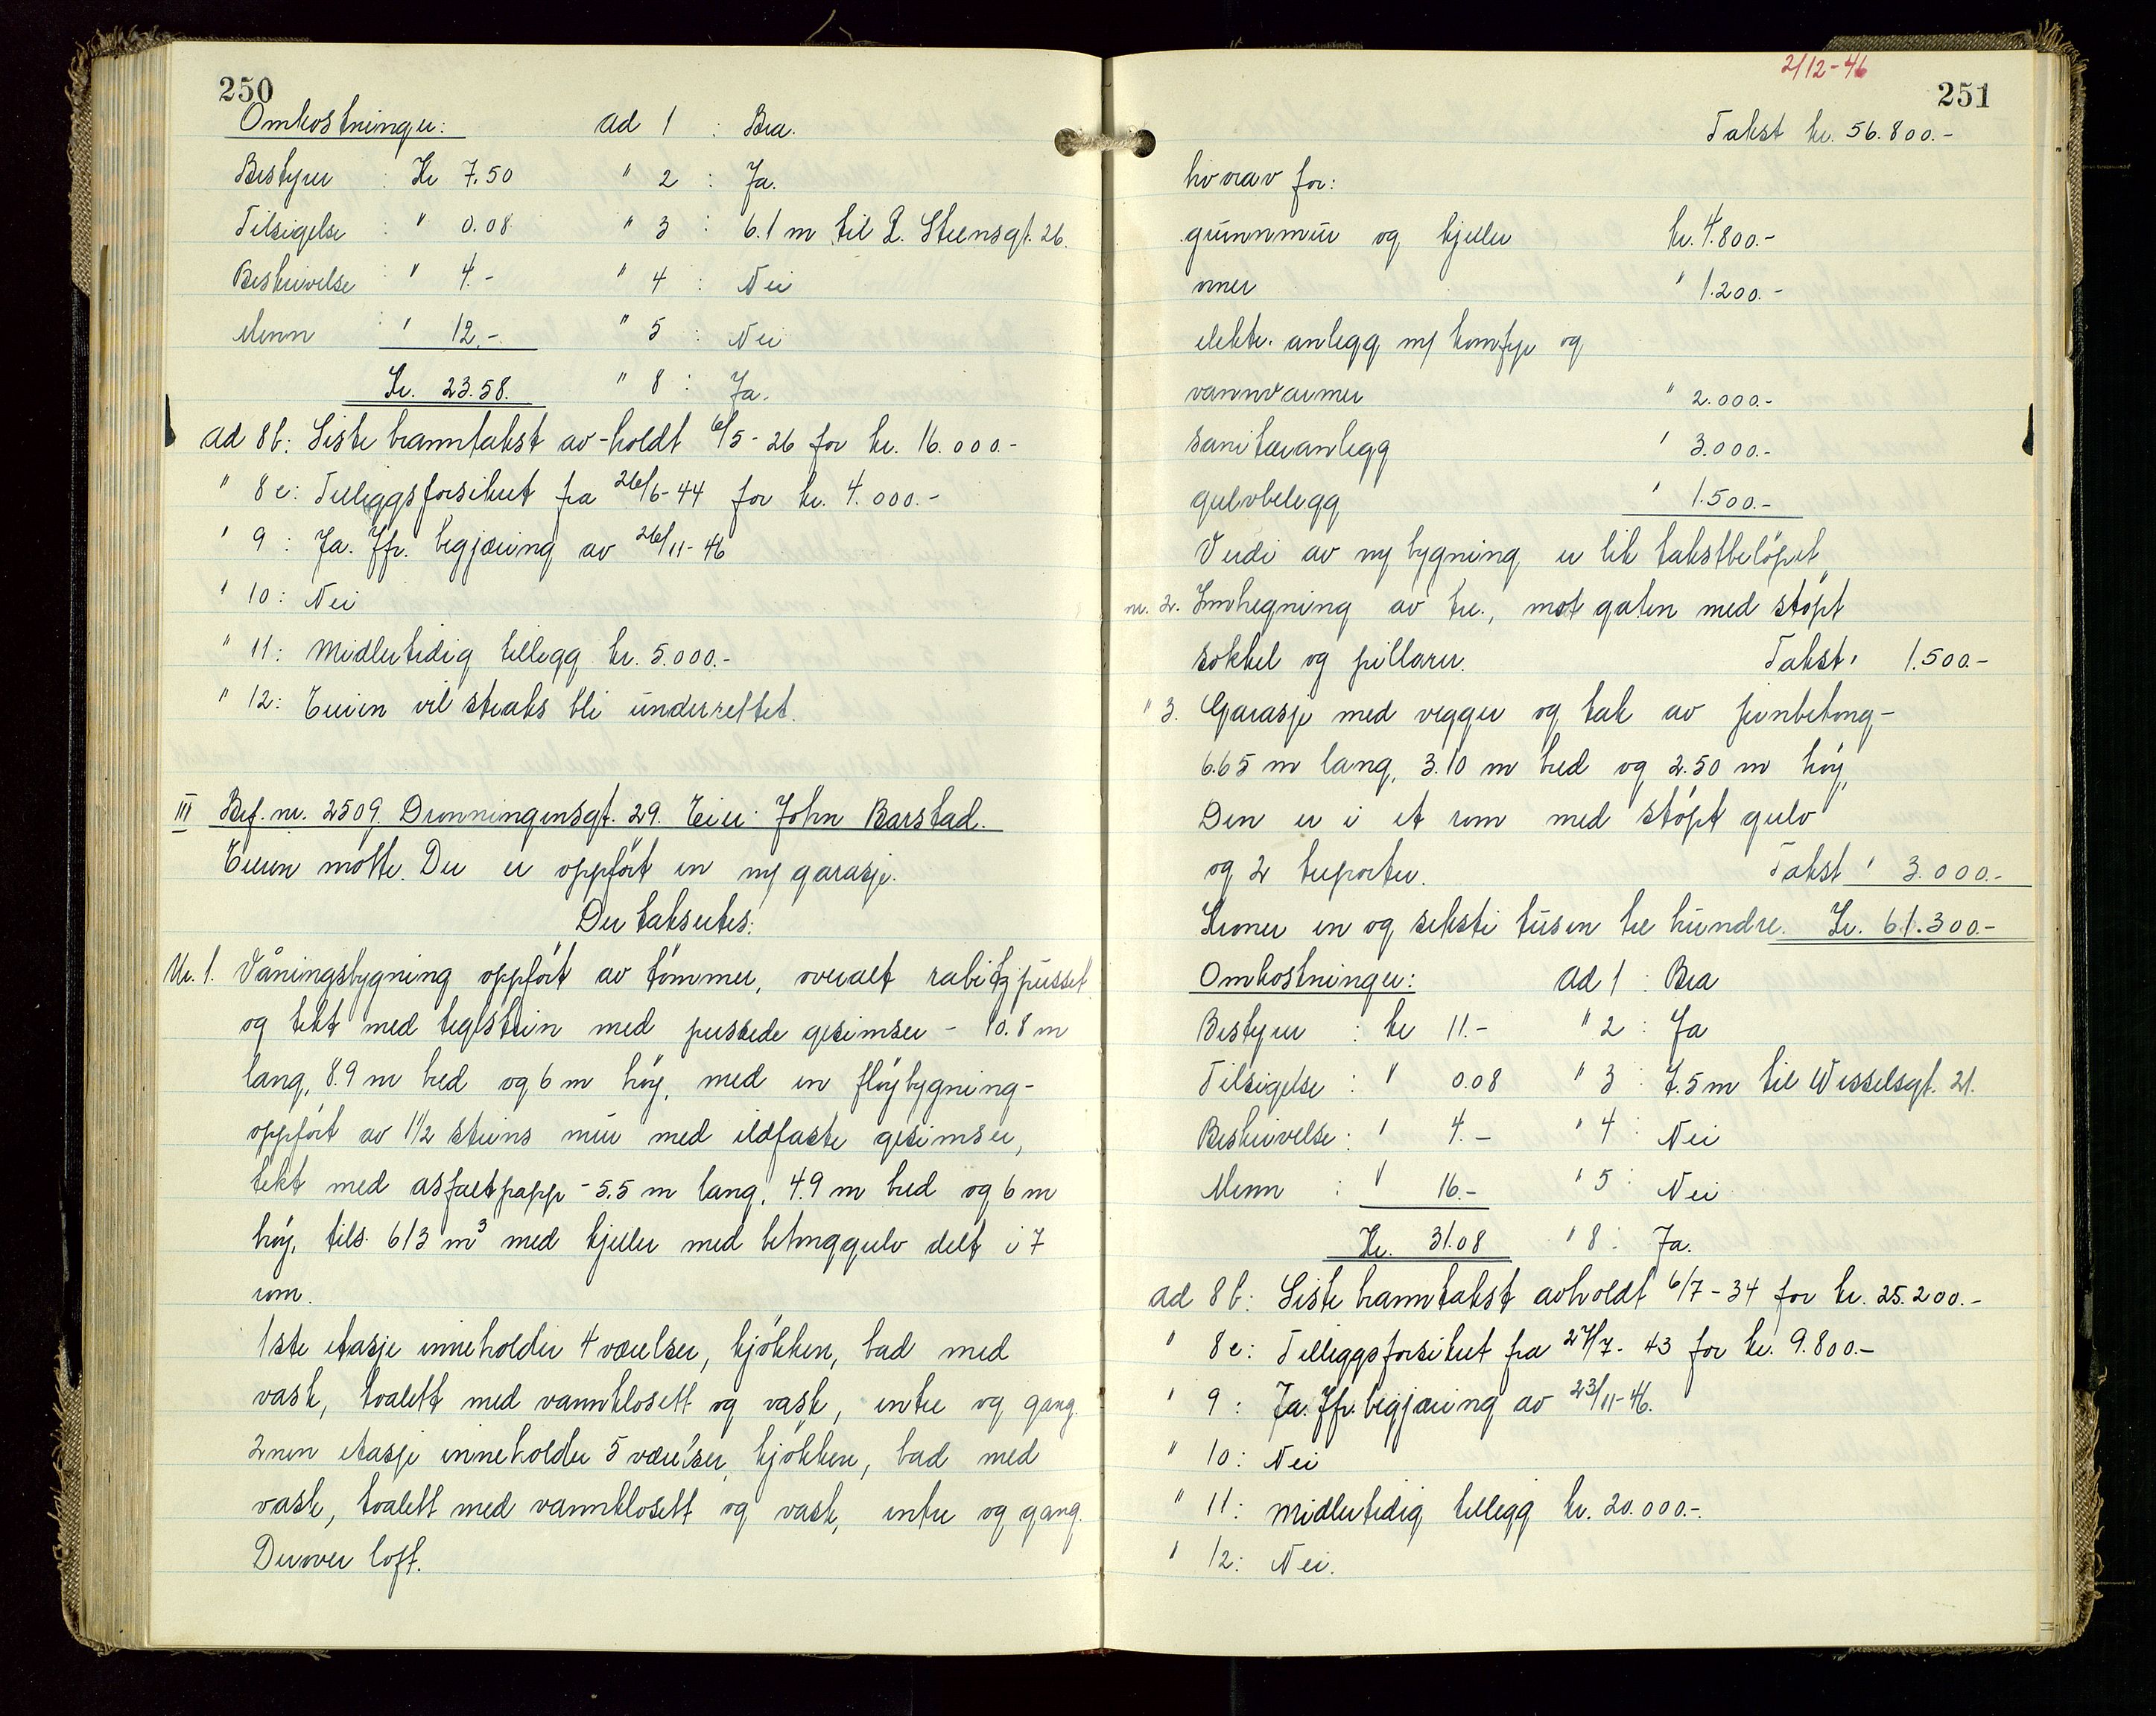 250
Omkostninger: ad 1 : Bra.
Bestyrer : Kr 7.50 " 2 : Ja.
Tilsigelse : " 0.08 " 3 : 6.1 m til P. Steensgt. 26.
Beskrivelse : " 4.- " 4 : Nei
Menn : " 12.- " 5 : Nei
Kr. 23.58. " 8 : Ja.
ad 8b: Siste branntakst av-holdt 6/5-26 for kr. 16.000.-
" 8c: Tilleggsforsikret fra 26/6-44 for kr. 4.000.-
" 9 : Ja. Jfr. begjæring av 26/11-46
" 10: Nei
" 11: Midlertidig tillegg kr. 5.000.-
" 12: Eieren vil straks bli underrettet.
III Brf. nr. 2509. Dronningensgt. 29. Eier: John Barstad.
Eieren møtte. Der er oppført en ny garasje.
Der takseres:
Nr. 1. Våningsbygning oppført av tømmer, overalt rabitzpusset
og tekt med teglstein med pussede gesimser - 10.8 m
lang, 8.9 m bred og 6 m høy, med en fløybygning-
oppført av 1 1/2 steins mur med ildfaste gesimser,
tekt med asfaltpapp - 5.5 m lang, 4.9 m bred og 6 m
høy, tils. 613 m³ med kjeller med betonggulv delt i 7
rom.
1ste etasje inneholder 4 værelser, kjøkken, bad med
vask, toalett med vannklosett og vask, entre og gang.
2nen etasje inneholder 5 værelser, kjøkken, bad med
vask, toalett med vannklosett og vask, entre og gang.
Derover loft.
2/12-46
251
Takst kr. 56.800.-
hvorav for:
grunnmur og kjeller kr. 4.800.-
ovner " 1.200.-
elektr. anlegg m/ komfyr og
vannvarmer " 2.000.-
sanitæranlegg " 3.000.-
gulvbelegg " 1.500.-
Verdi av ny bygning er lik takstbeløpet.
nr. 2. Innhegning av tre, mot gaten med støpt
sokkel og pillarer. Takst " 1.500.-
" 3. Garasje med vegger og tak av jernbetong-
6.65 m lang, 3.10 m bred og 2.50 m høy,
Den er i et rom med støpt gulv
og 2 treporter. Takst " 3.000.-
Kroner en og seksti tusen tre hundre. Kr. 61.300.-
Omkostninger: ad 1 : Bra
Bestyrer : kr 11.- " 2 : Ja
Tilsigelse : " 0.08 " 3 : 7.5 m til Wesselsgt. 21.
Beskrivelse: " 4.- " 4 : Nei
Menn : " 16.- " 5 : Nei
Kr. 31.08 " 8 : Ja.
ad 8b: Siste branntakst avholdt 6/7-34 for kr. 25.200.-
" 8c: Tilleggsforsikret fra 27/7-43 for kr. 9.800.-
" 9 : Ja. Jfr. begjæring av 23/11-46.
" 10: Nei
" 11: Midlertidig tillegg kr. 20.000.-.
" 12: Nei.